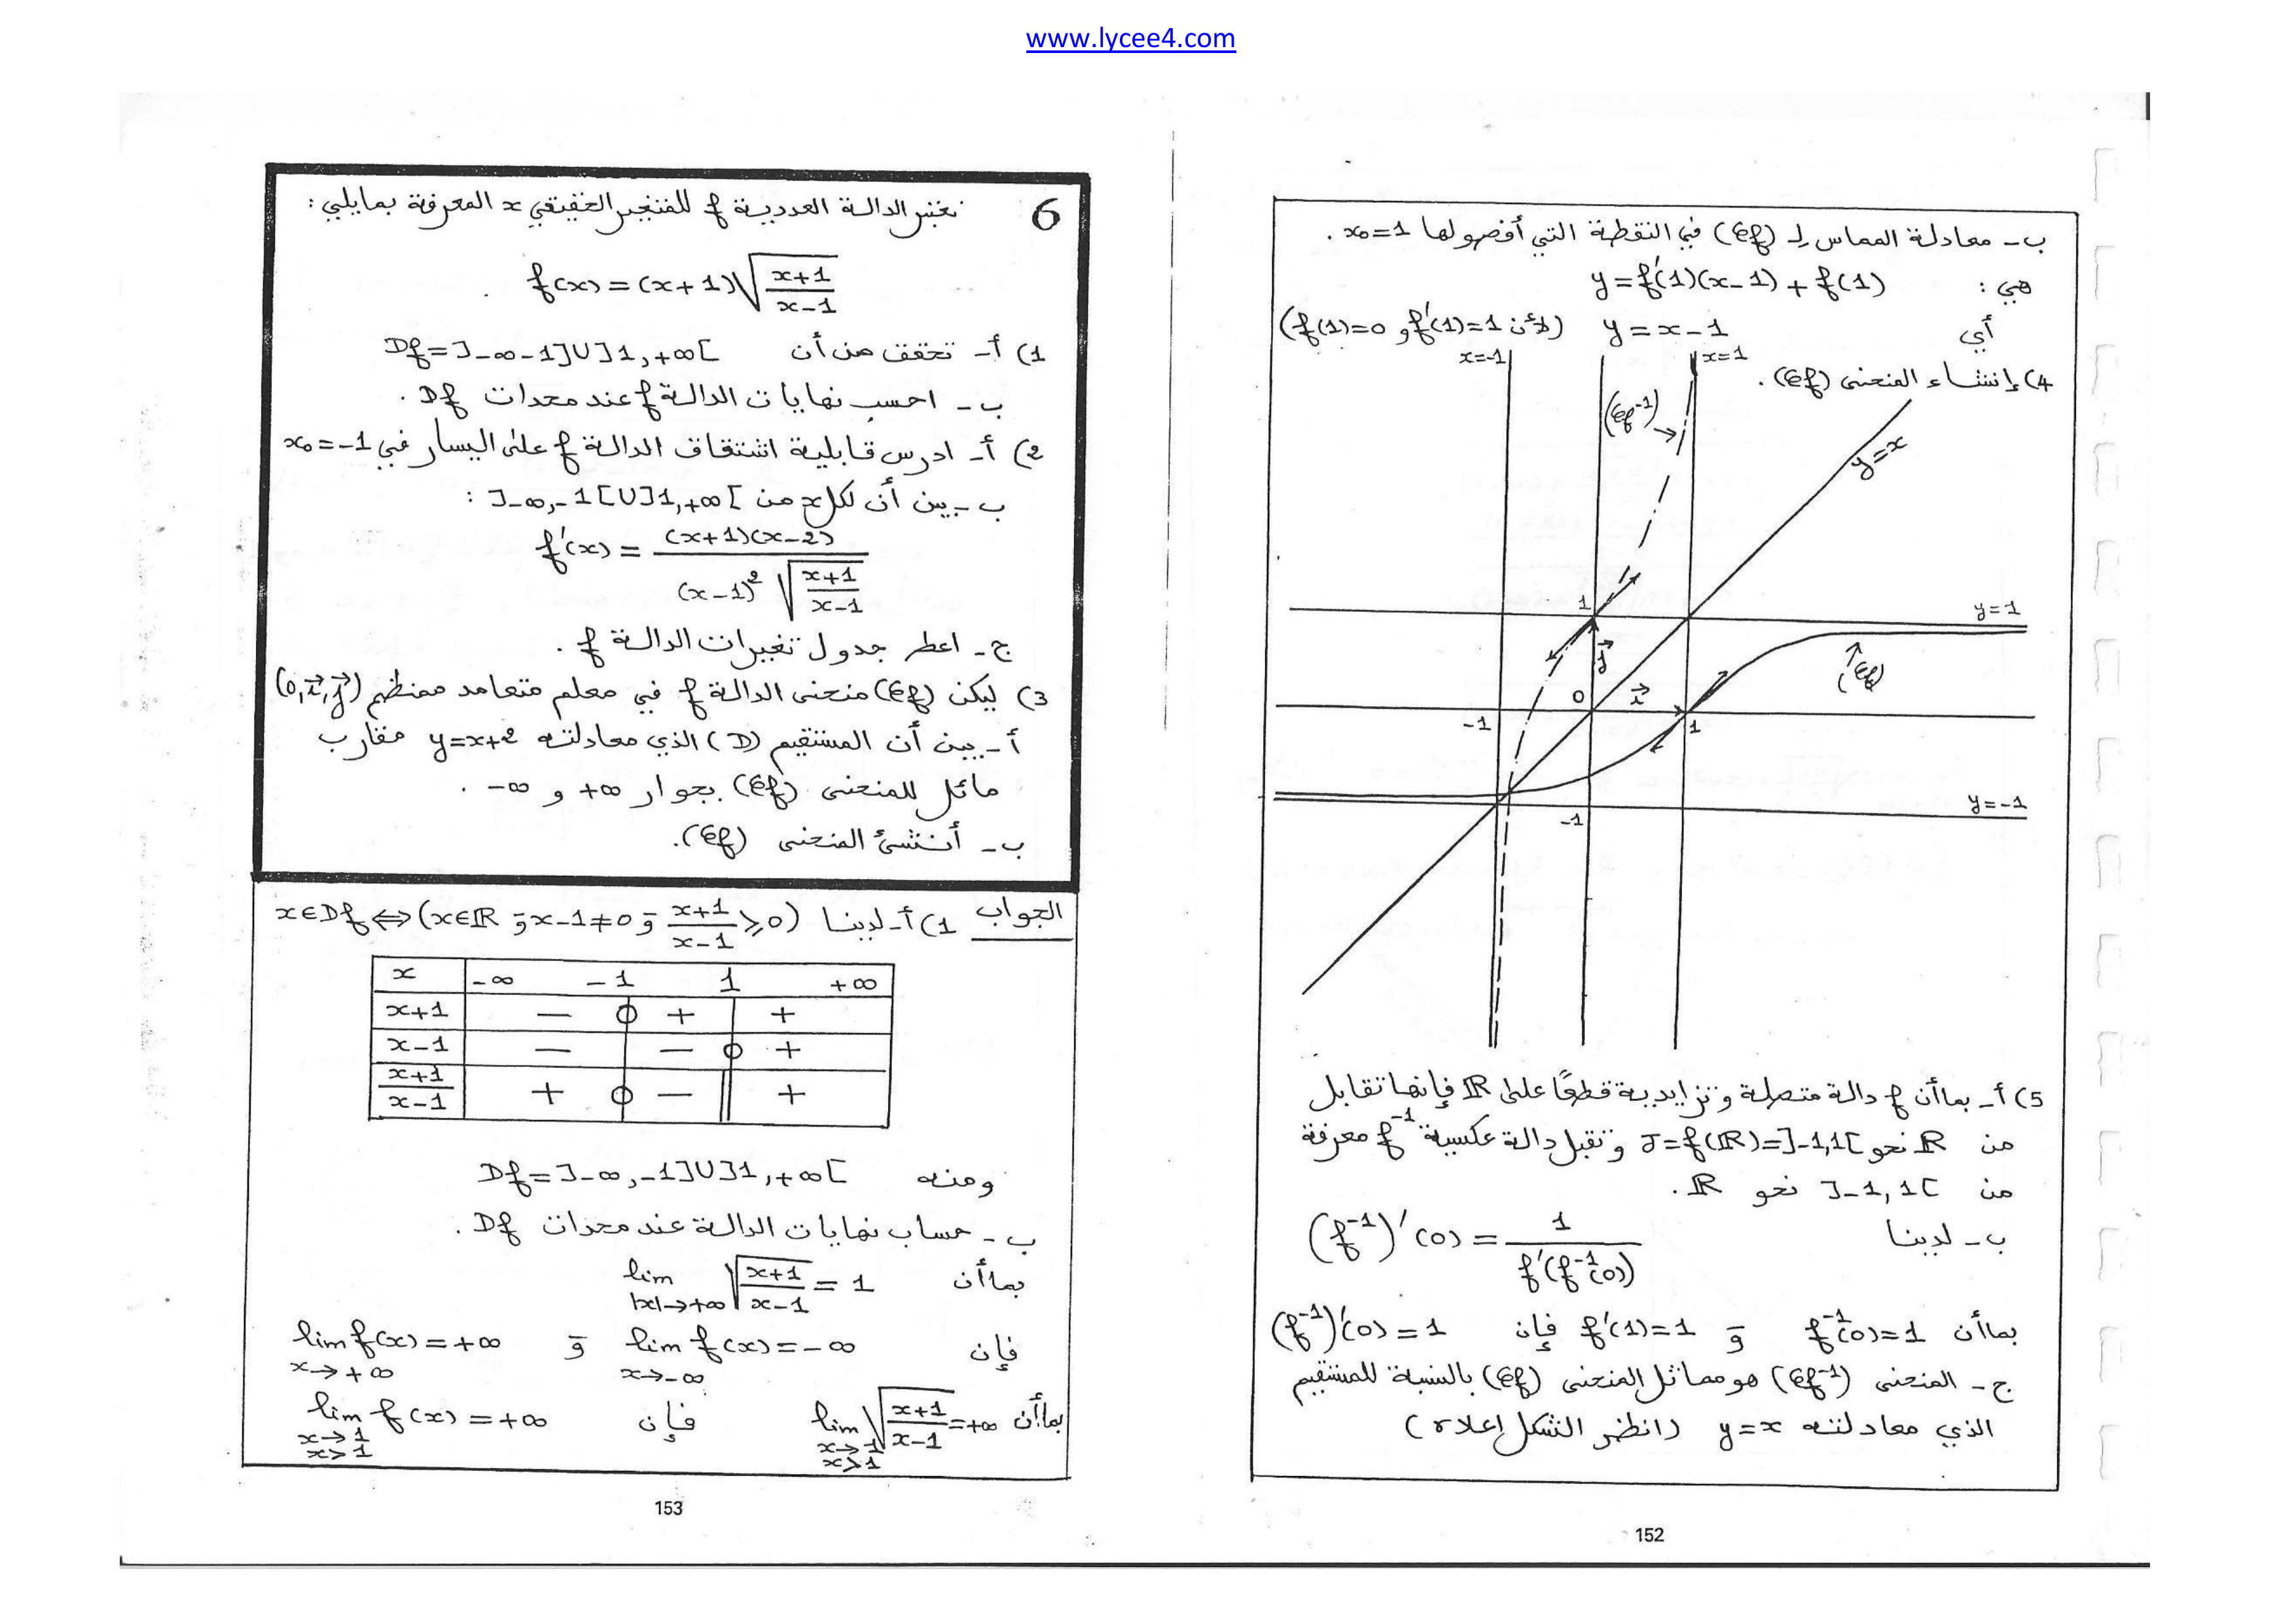 www.lycee4.com
ب - معادلة المماس لـ (𝒞f) في النقطة التي أفصولها x₀=1 .
هي : y = f'(1)(x-1) + f(1)
أي y = x - 1 (لأن f'(1)=1 و f(1)=0)
4) إنشاء المنحنى (𝒞f) .
x=-1
x=1
(𝒞f⁻¹)
y=x
1
y=1
j
(𝒞f)
0
i
-1
1
-1
y=-1
5) أ - بما أن f دالة متصلة و تزايدية قطعًا على ℝ فإنها تقابل
من ℝ نحو J=f(ℝ)=]-1,1[ و تقبل دالة عكسية f⁻¹ معرفة
من ]-1,1[ نحو ℝ .
ب - لدينا (f⁻¹)'(0) = 1/f'(f⁻¹(0))
بما أن f⁻¹(0)=1 و f'(1)=1 فإن (f⁻¹)'(0)=1
ج - المنحنى (𝒞f⁻¹) هو مماثل المنحنى (𝒞f) بالنسبة للمستقيم
الذي معادلته y=x (انظر الشكل إعلاه)
152
6 نعتبر الدالة العددية f للمتغير الحقيقي x المعرفة بمايلي :
f(x) = (x+1)√((x+1)/(x-1)) .
1) أ - تحقق من أن Df=]-∞-1]∪]1,+∞[
ب - احسب نهايات الدالة f عند محدات Df .
2) أ - ادرس قابلية اشتقاق الدالة f على اليسار في x₀=-1
ب - بين أن لكل x من ]-∞,-1[∪]1,+∞[ :
f'(x) = (x+1)(x-2)/((x-1)²√((x+1)/(x-1)))
ج - اعط جدول تغيرات الدالة f .
3) ليكن (𝒞f) منحنى الدالة f في معلم متعامد ممنظم (0,i,j)
أ - بين أن المستقيم (D) الذي معادلته y=x+2 مقارب
مائل للمنحنى (𝒞f) بجوار +∞ و -∞ .
ب - أنشئ المنحنى (𝒞f).
الجواب 1) أ - لدينا x∈Df⇔(x∈ℝ و x-1≠0 و (x+1)/(x-1)≥0)
x -∞ -1 1 +∞
x+1 - 0 + +
x-1 - - 0 +
(x+1)/(x-1) + 0 - || +
ومنه Df=]-∞,-1]∪]1,+∞[
ب - حساب نهايات الدالة عند محدات Df .
بما أن lim |x|→+∞ √((x+1)/(x-1)) = 1
فإن lim x→-∞ f(x)=-∞ و lim x→+∞ f(x)=+∞
بما أن lim x→1 x>1 √((x+1)/(x-1))=+∞ فإن lim x→1 x>1 f(x)=+∞
153